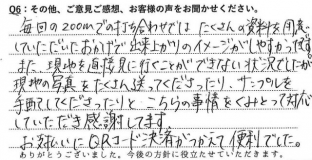 Q6：その他、ご意見ご感想、お客様の声をお聞かせください。
毎回のzoomでの打ち合わせではたくさんの資料を用意
していただいたおかげで出来上がりのイメージがしやすかったです
また、現地を直接見に行くことができない状況でしたが
現地の写真をたくさん送ってくださったり、サンプルを
手配してくださったりと こちらの事情をくみとって対応
していただき感謝してます
お支払いにQRコード決済がつかえて便利でした。
ありがとうございました。今後の方針に役立たせていただきます。